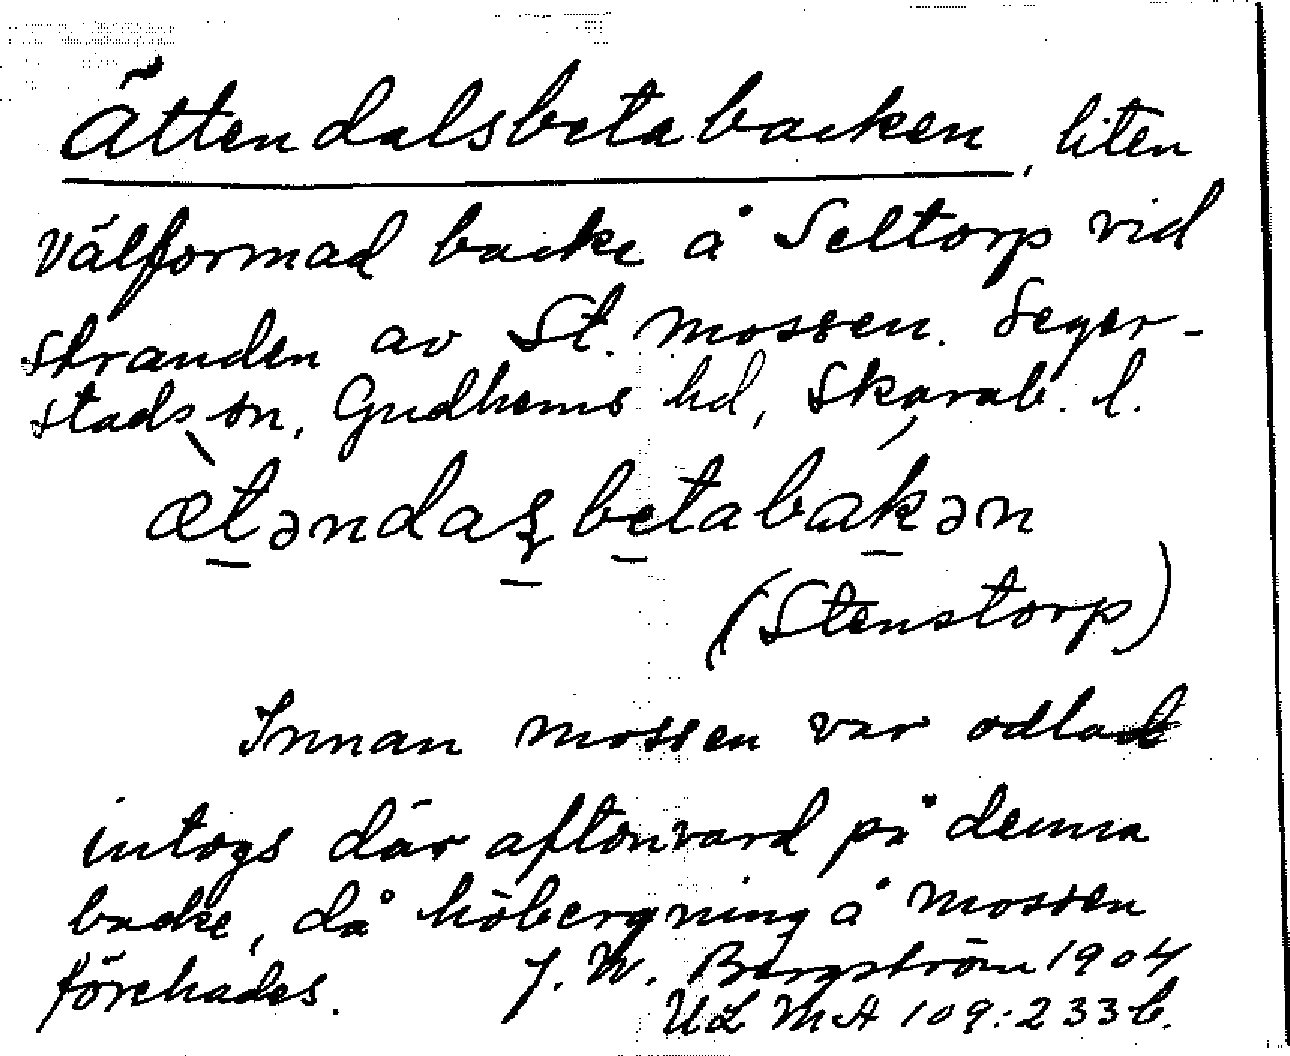 Ättendalsbetabacken, liten
välformad backe å Seltorp vid
stranden av St. mossen. Seger-
stads sn, Gudhems hd, Skarab. l.
ætəndaʂbetabakən
(Stenstorp)
Innan mossen var odlad
intogs där aftonvard på denna
backe, då höbergning å mossen
förehades. J. W. Bergström 1904
ULMA 109:233 b.